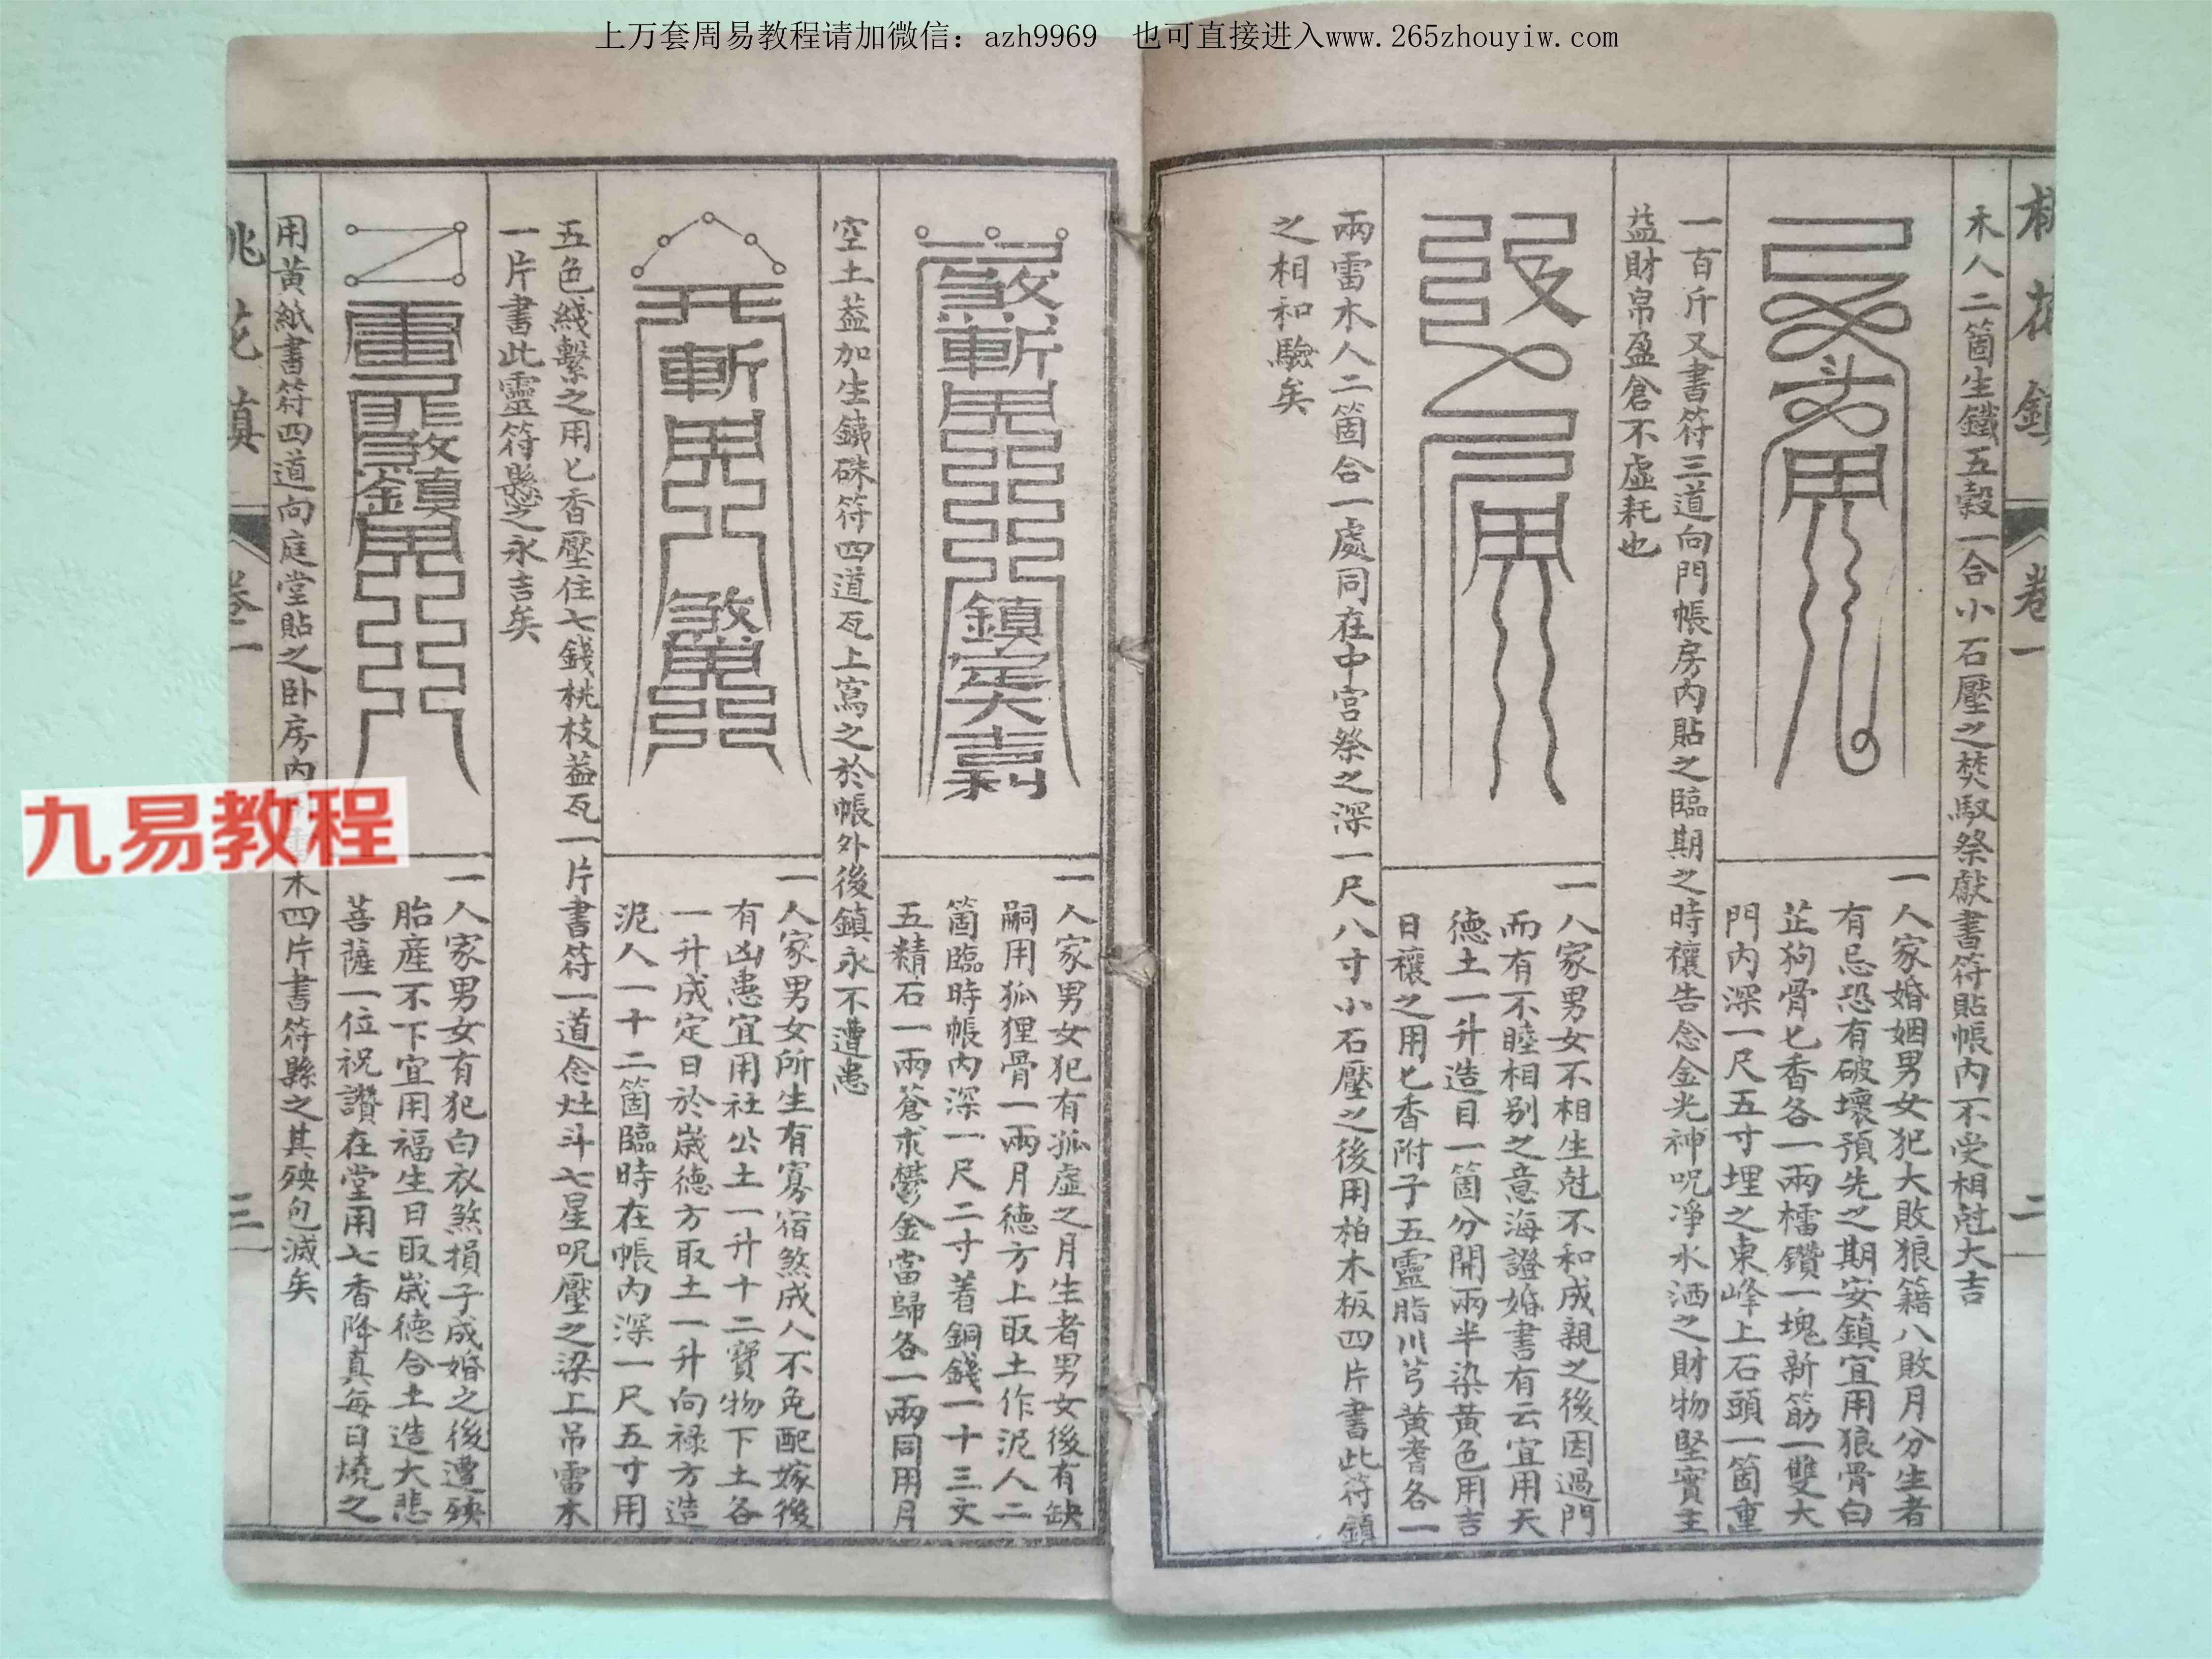 上万套周易教程请加微信：azh9969　也可直接进入www.265zhouyiw.com
桃花鎮
卷一
二
木人二箇生鐵五穀一合小石壓之焚馭祭獻書符貼帳內不受相尅大吉
一人家婚姻男女犯大敗狼籍八敗月分生者
有忌恐有破壞預先之期安鎮宜用狼骨白
芷狗骨七香各一兩檽鑽一塊新筯一雙大
門內深一尺五寸埋之東峰上石頭一箇重
一百斤又書符三道向門帳房內貼之臨期之時禳告念金光神呪淨水洒之財物堅實主
益財帛盈倉不虛耗也
一人家男女不相生尅不和成親之後因過門
而有不睦相别之意海證婚書有云宜用天
德土一升造目一箇分開兩半染黃色用吉
日禳之用七香附子五靈脂川芎黃耆各一
兩雷木人二箇合一處同在中宮祭之深一尺八寸小石壓之後用柏木板四片書此符鎮
之相和驗矣
一人家男女犯有孤虛之月生者男女後有缺
嗣用狐狸骨一兩月德方上取土作泥人二
箇臨時帳內深一尺二寸着銅錢一十三文
五精石一兩蒼朮鬱金當歸各一兩同用月
空土葢加生銕硃符四道瓦上寫之於帳外後鎮永不遭患
煞斬
鎮定大吉利
一人家男女所生有寡宿煞成人不免配嫁後
有凶恚宜用社公土一升十二寶物下土各
一升成定日於嵗德方取土一升向禄方造
泥人一十二箇臨時在帳內深一尺五寸用
五色綫繫之用七香壓住七錢桃枝葢瓦一片書符一道念灶斗七星呪壓之梁上吊雷木
一片書此靈符懸之永吉矣
斬
煞
一人家男女有犯白衣煞損子成婚之後遭殃
胎産不下宜用福生日取嵗德合土造大悲
菩薩一位祝讚在堂用七香降真每日燒之
用黃紙書符四道向庭堂貼之卧房內木四片書符縣之其殃包滅矣
鎮
桃花鎮
卷一
三
九易教程